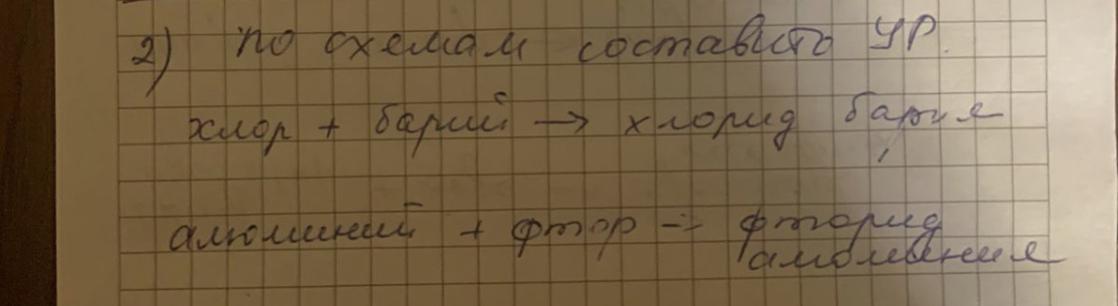 2) по схемам составить УР.
хлор + барий → хлорид бария
алюминий + фтор → фторид
алюминия